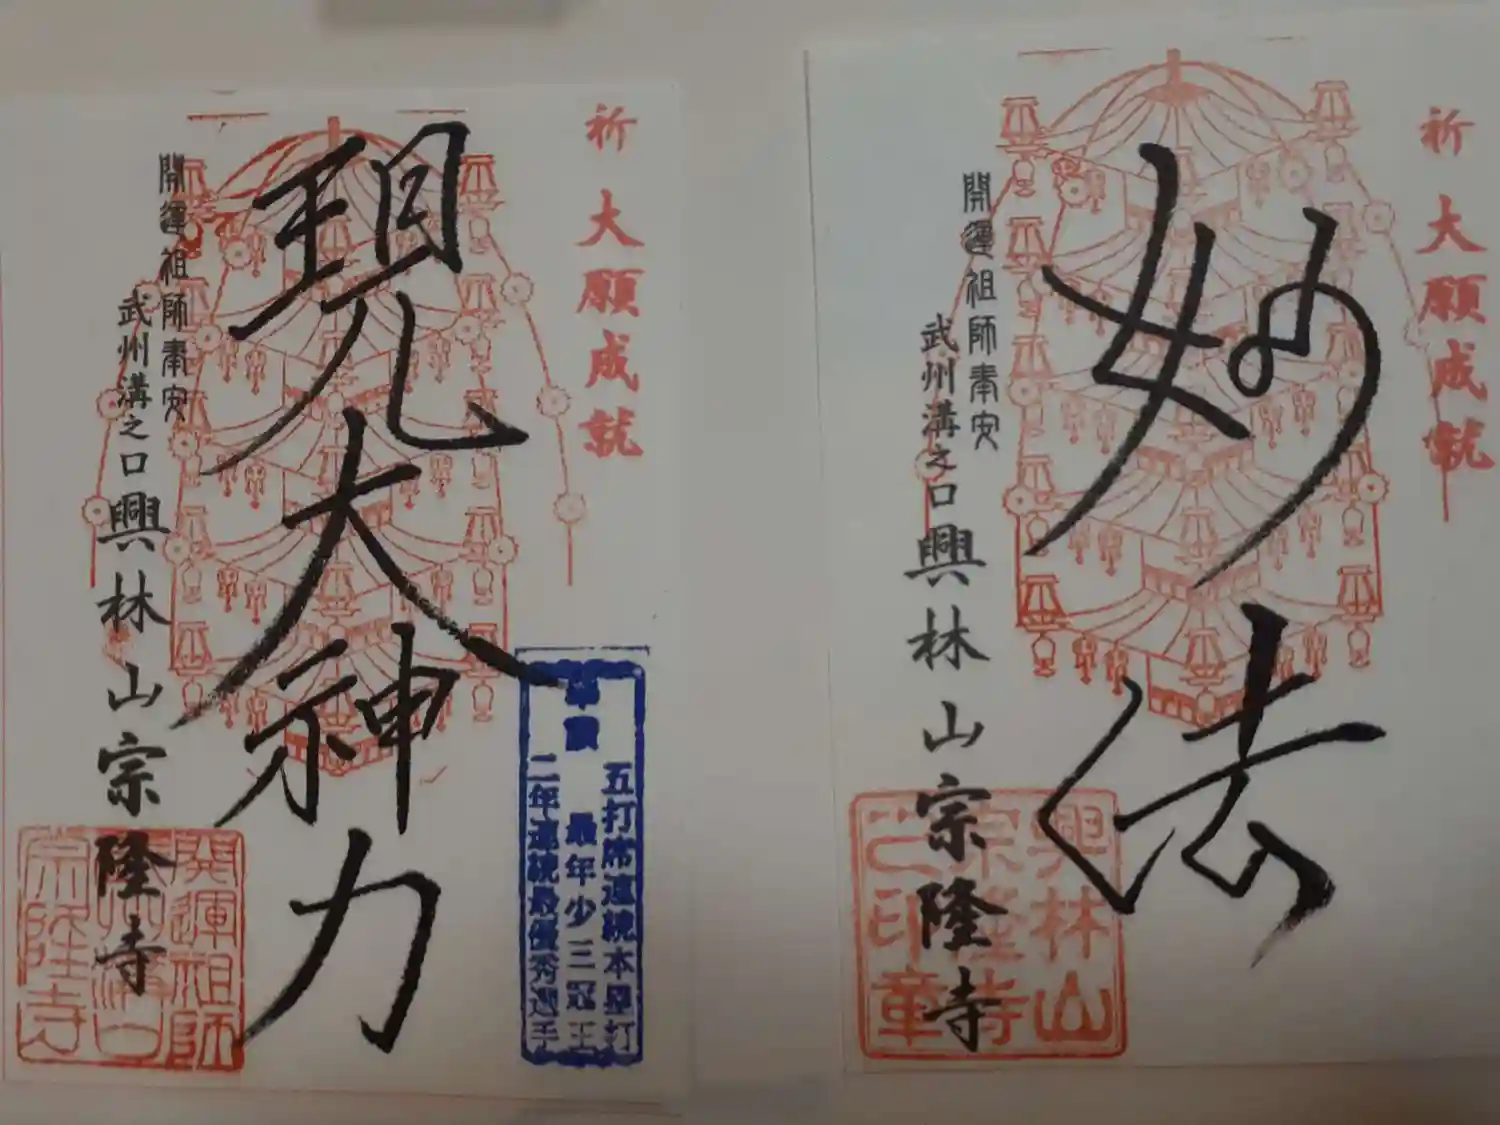 祈 大願成就
現大神力
開運祖師奉安
武州溝之口興林山宗隆寺
奉讃
五打席連続本塁打
最年少三冠王
二年連続最優秀選手
祈 大願成就
妙法
開運祖師奉安
武州溝之口興林山宗隆寺
興林山
宗隆寺
之印章